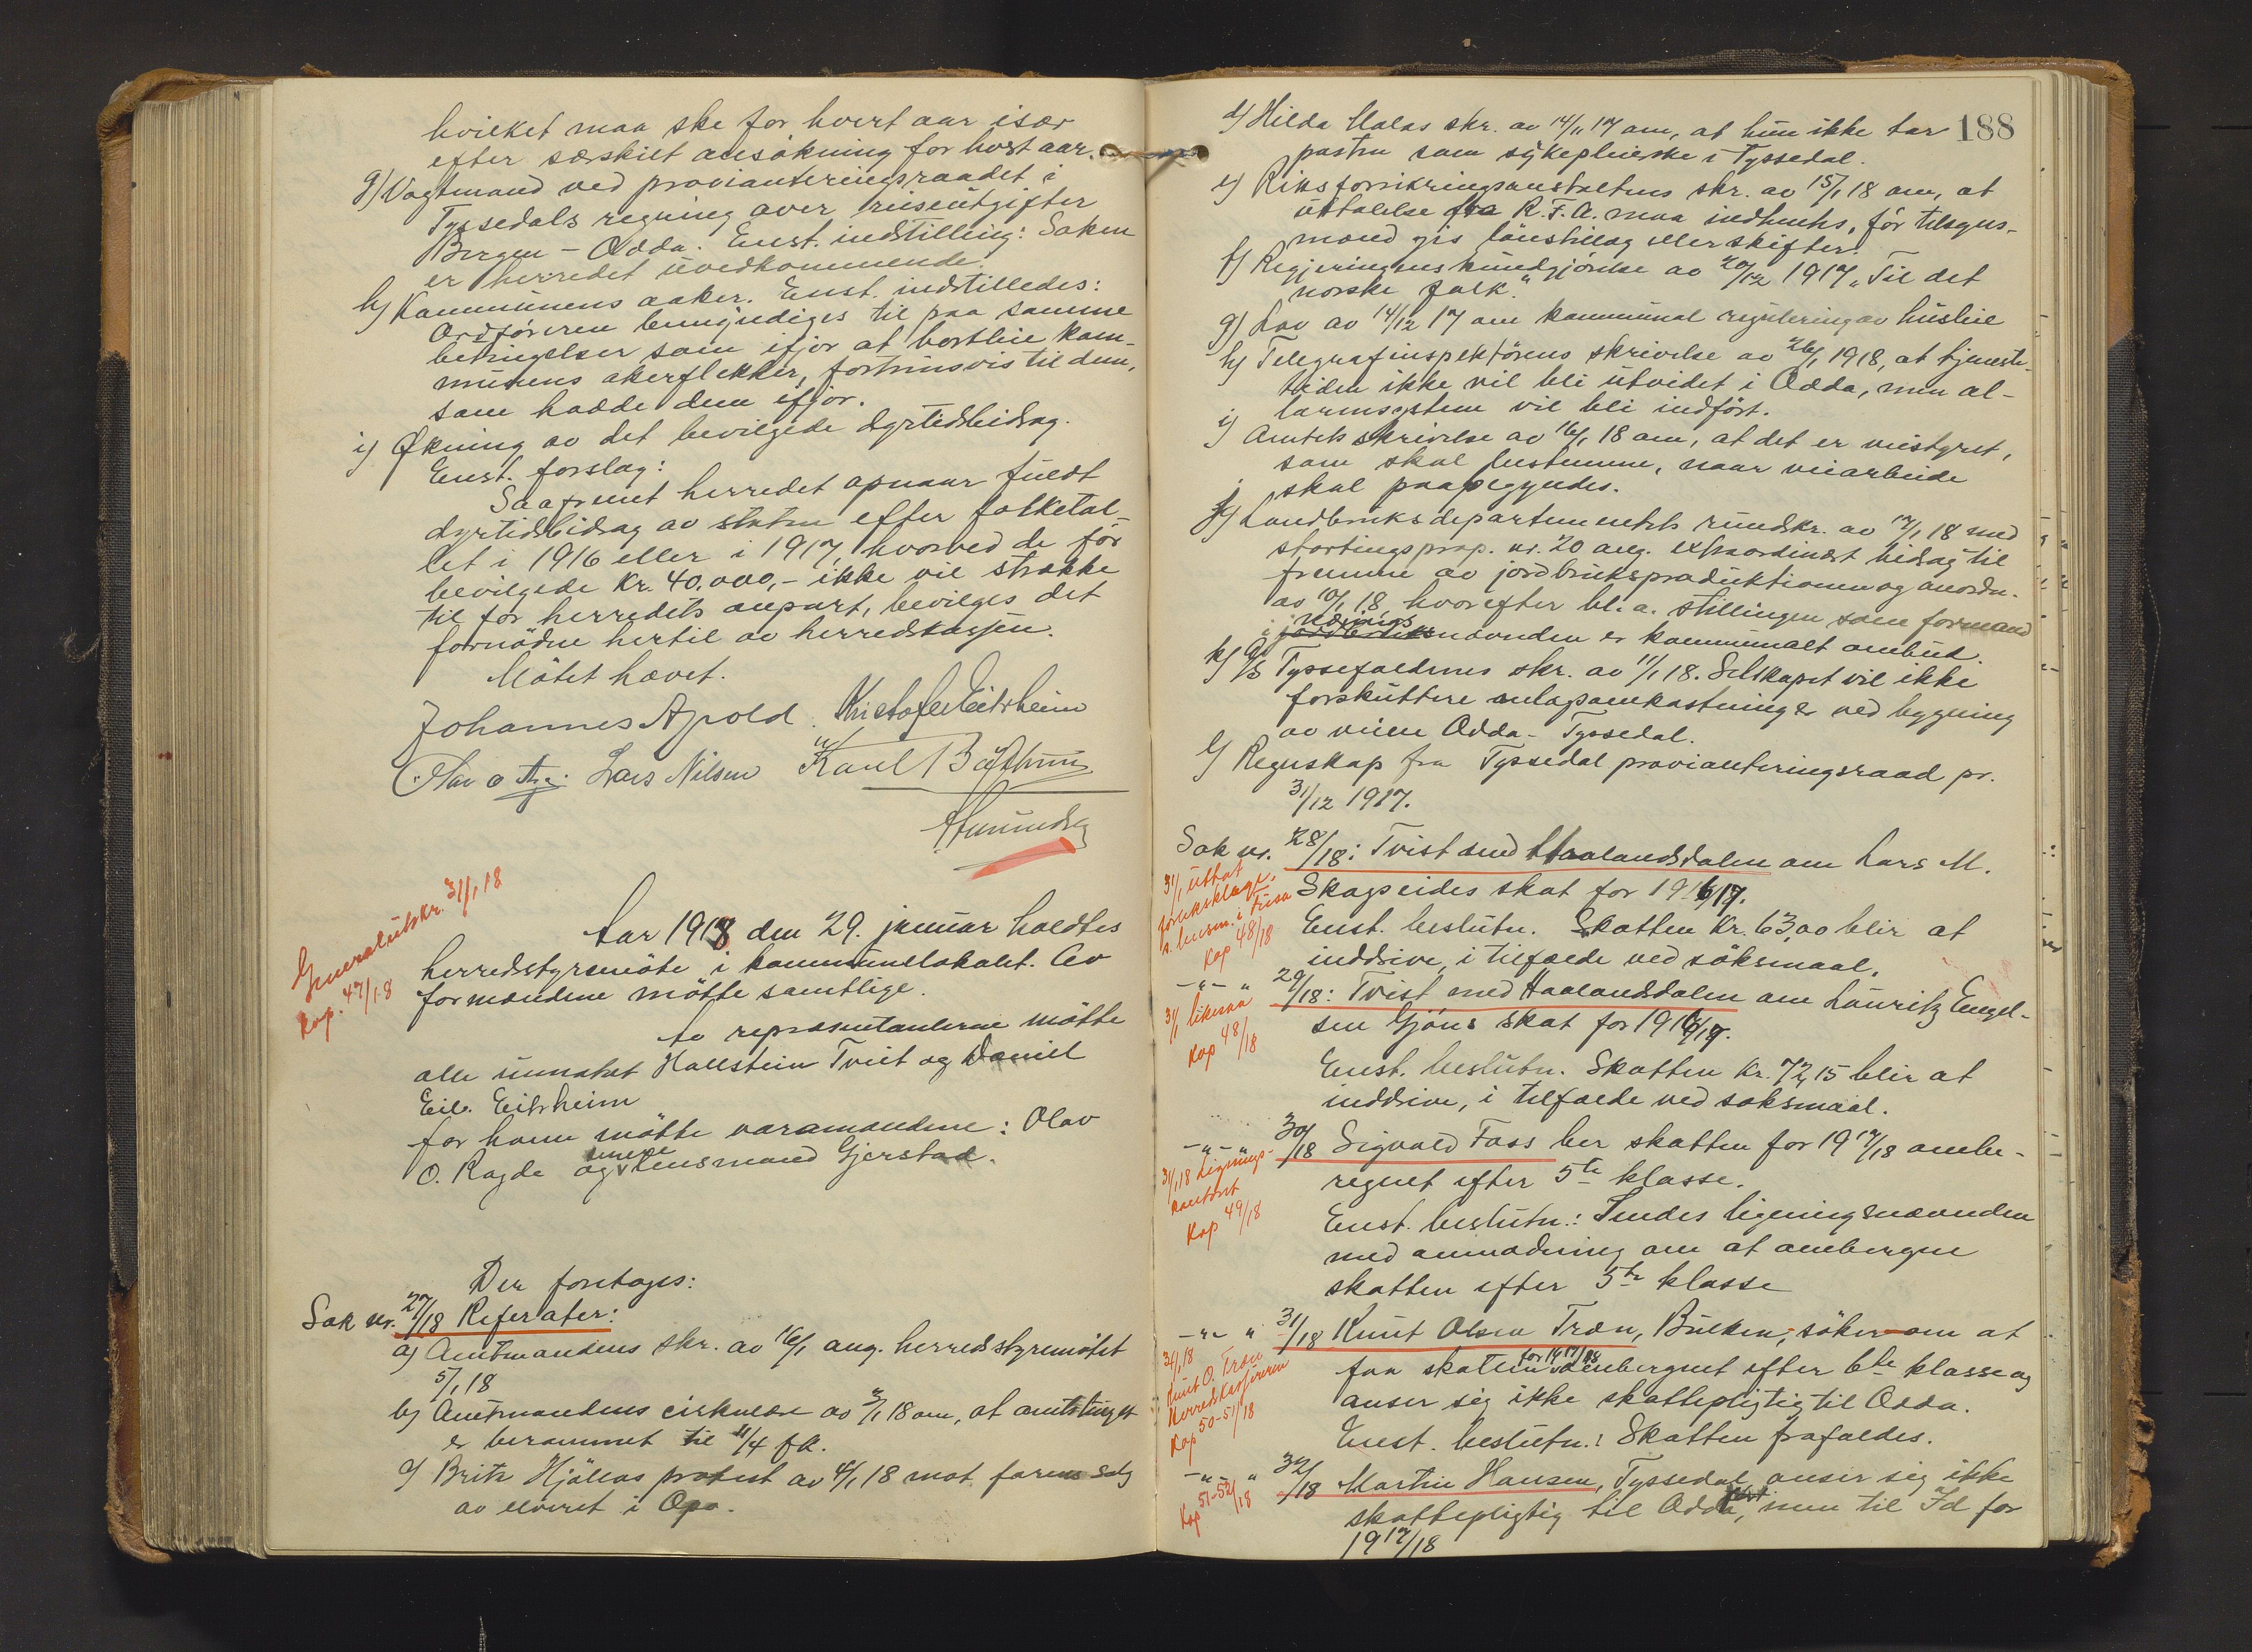 hvilket maa ske for hvert aar især
efter særskilt ansøkning for hvert aar.
g) Vagtmand ved provianteringsraadet i
Tyssedals regning over reiseutgifter
Bergen - Odda. Enst. indstilling: Saken
er herredet uvedkommende.
h) Kommunens aaker. Enst. indstilledes:
Ordføreren bemyndiges til paa samme
betingelser som ifjor at bortleie kom-
munens akerflekker, fortrinsvis til dem,
som hadde dem ifjor.
i) Økning av det bevilgede dyrtidsbidrag.
Enst. forslag:
Saafremt herredet opnaar fuldt
dyrtidsbidrag av staten efter folketal-
let i 1916 eller i 1917, hvorved de før
bevilgede Kr. 40.000,- ikke vil strække
til for herredets anpart, bevilges det
fornødne hertil av herredskassen.
Møtet hævet.
Johannes Apold. Kristofer Eitrheim
Olav O. Lars Nilsen Karl
Amundsen
Generalutskr. 31/1 18
Kop. 47/18
Aar 1918 den 29. januar holdtes
herredsstyremøte i kommunelokalet. Av
formændene møtte samtlige.
Av repræsentanterne møtte
alle undtat Hallstein Tveit og Daniel
Eil. Eitrheim
for ham møtte varamændene: Olav
O. Ragde og lensmand Gjerstad.
Der foretages:
Sak nr. 27/18 Referater:
a) Amtmandens skr. av 16/1 ang. herredsstyremøtet
5/1 18
b) Amtmandens cirkulære av 3/1 18 om, at amtstinget
er berammet til 11/4 fk.
c) Brita Hjøllos protest av 4/1 18 mot farens salg
av elveret i Opo.
188
d) Hilda Aalas skr. av 14/11 17 om, at hun ikke tar
posten som sykepleierske i Tyssedal.
e) Riksforsikringsanstaltens skr. av 15/1 18 om, at
uttalelse fra R.F.A. maa indhentes, før tilsyns-
mand gis lønstillæg eller skifter.
f) Regjeringens kundgjørelse av 20/12 1917 "Til det
norske folk."
g) Lov av 14/12 17 om kommunal regulering av husleie
h) Telegrafinspektørens skrivelse av 26/1 1918, at tjeneste-
tiden ikke vil bli utvidet i Odda, men al-
larmsystem vil bli indført.
i) Amtets skrivelse av 16/1 18 om, at det er veistyret,
som skal bestemme, naar veiarbeide
skal paabegyndes.
j) Landbruksdepartementets rundskr. av 17/1 18 med
stortingsprop. nr. 20 ang. extraordinært bidrag til
fremme av jordbruksproduktionen og anordn.
av 10/1 18, hvorefter bl. a. stillingen som formand
nærings
i jordbruksnævnden er kommunalt ombud.
k) A/S Tyssefaldenes skr. av 11/1 18. Selskapet vil ikke
forskuttere anlægsomkostninger ved bygning
av veien Odda - Tyssedal.
l) Regnskap fra Tyssedal provianteringsraad pr.
31/12 1917.
Sak nr. 28/18: Tvist med Haalandsdalen om Lars M.
Skogseides skat for 1916/17.
Enst. beslutn. Skatten Kr. 63,00 blir at
inddrive, i tilfælde ved søksmaal.
31/1 uttat
forliksklage,
Kop 48/18
-"- " 29/18: Tvist med Haalandsdalen om Lauritz Engel-
sen Gjøns skat for 1916/17.
31/1 likesaa
Kop 48/18
Enst. beslutn. Skatten Kr. 72,15 blir at
inddrive, i tilfælde ved søksmaal.
-"- " 30/18 Sigvald Foss ber skatten for 1917/18 ombe-
regnet efter 5te klasse.
31/1 18 Ligнings-
kontoret
Kop 49/18
Enst. beslutn.: Sendes ligningsnævnden
med anmodning om at omberegne
skatten efter 5te klasse
-"- " 31/18 Knut Olsen Træn, Bulken, søker om at
faa skatten for 1917/18 omberegnet efter 6te klasse og
anser sig ikke skattepligtig til Odda.
31/1 18
Knut O. Træn
Herredskassereren
Kop 50-51/18
Enst. beslutn.: Skatten frafaldes.
-"- " 32/18 Martin Hansen, Tyssedal, anser sig ikke
skattepligtig til Odda, men til Id for
1917/18
Kop 51-52/18